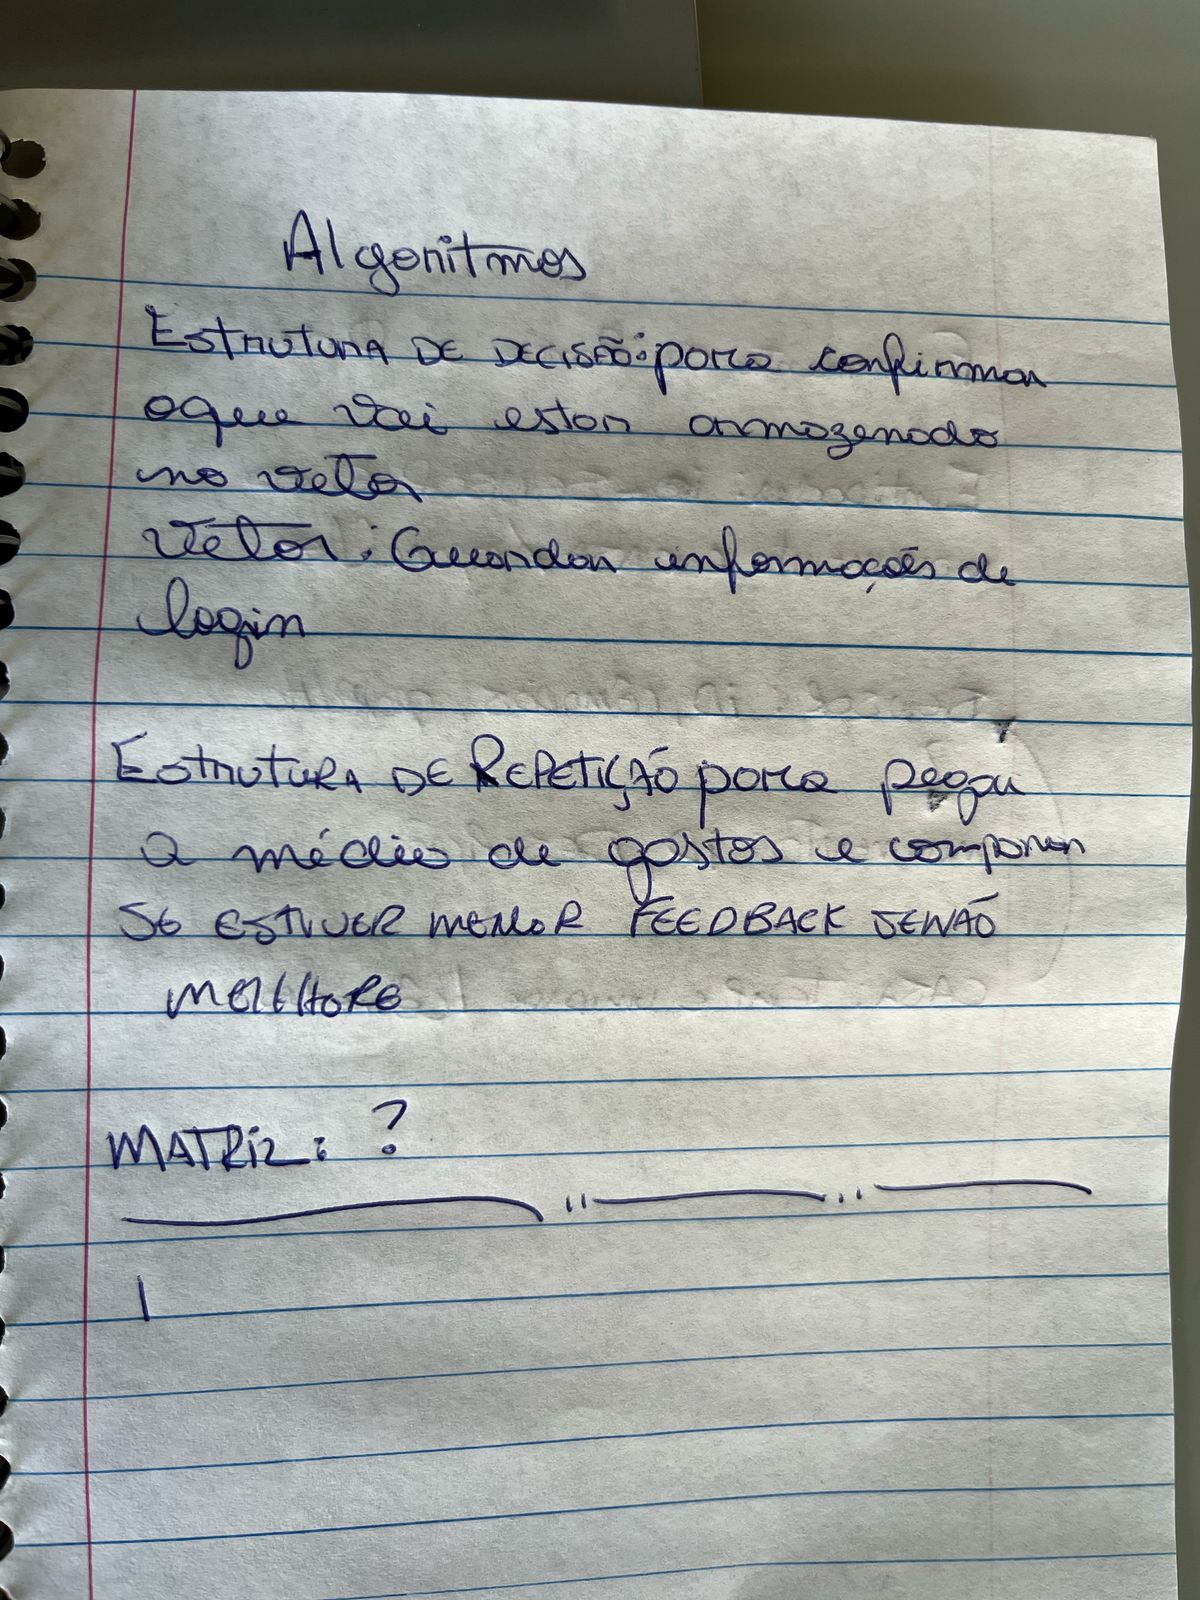 Algoritmos
ESTRUTURA DE DECISÃO: para confirmar
oque vai estar armazenado
no vetor
Vetor: Guardar informações de
login
ESTRUTURA DE REPETIÇÃO para pegar
a média de gastos e comparar
SE ESTIVER MENOR FEEDBACK SENÃO
MELHORE
MATRIZ: ?